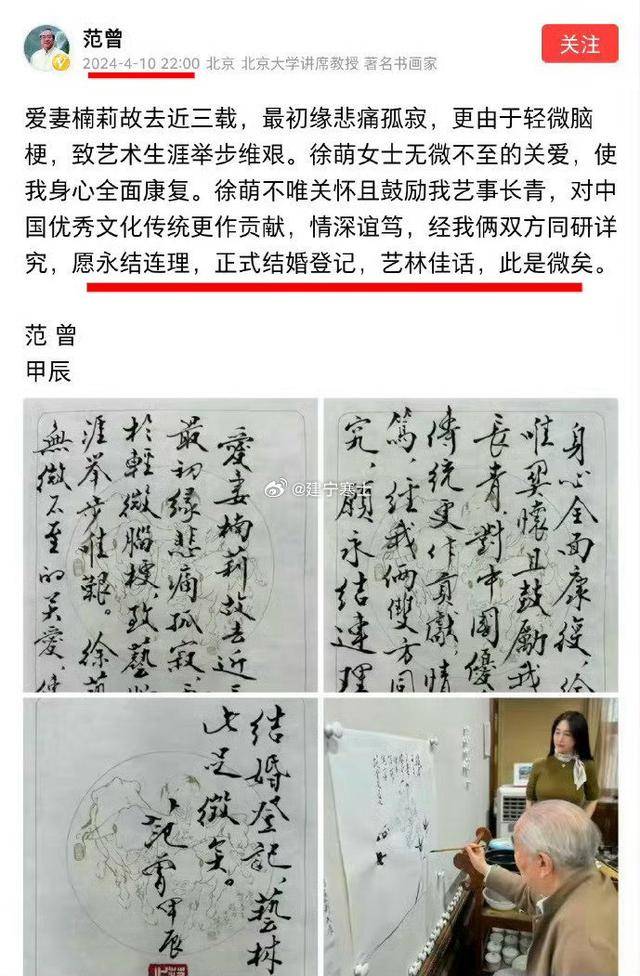 范曾
2024-4-10 22:00 北京 北京大学讲席教授 著名书画家
关注
爱妻楠莉故去近三载，最初缘悲痛孤寂，更由于轻微脑
梗，致艺术生涯举步维艰。徐萌女士无微不至的关爱，使
我身心全面康复。徐萌不唯关怀且鼓励我艺事长青，对中
国优秀文化传统更作贡献，情深谊笃，经我俩双方同研详
究，愿永结连理，正式结婚登记，艺林佳话，此是微矣。
范 曾
甲辰
愛妻楠莉故去近三
最初缘悲痛孤寂，
於輕微腦梗，致藝
涯举步唯艱。徐萌
無微不至的关愛，使
@建宁寒士
身心全面康復，徐
唯関懷且鼓勵我
長青，對中國優
傳統更作貢獻，情
篤，經我倆雙方同
究，願永结連理
结婚登記，藝林
此足徵矣。
范曾甲辰